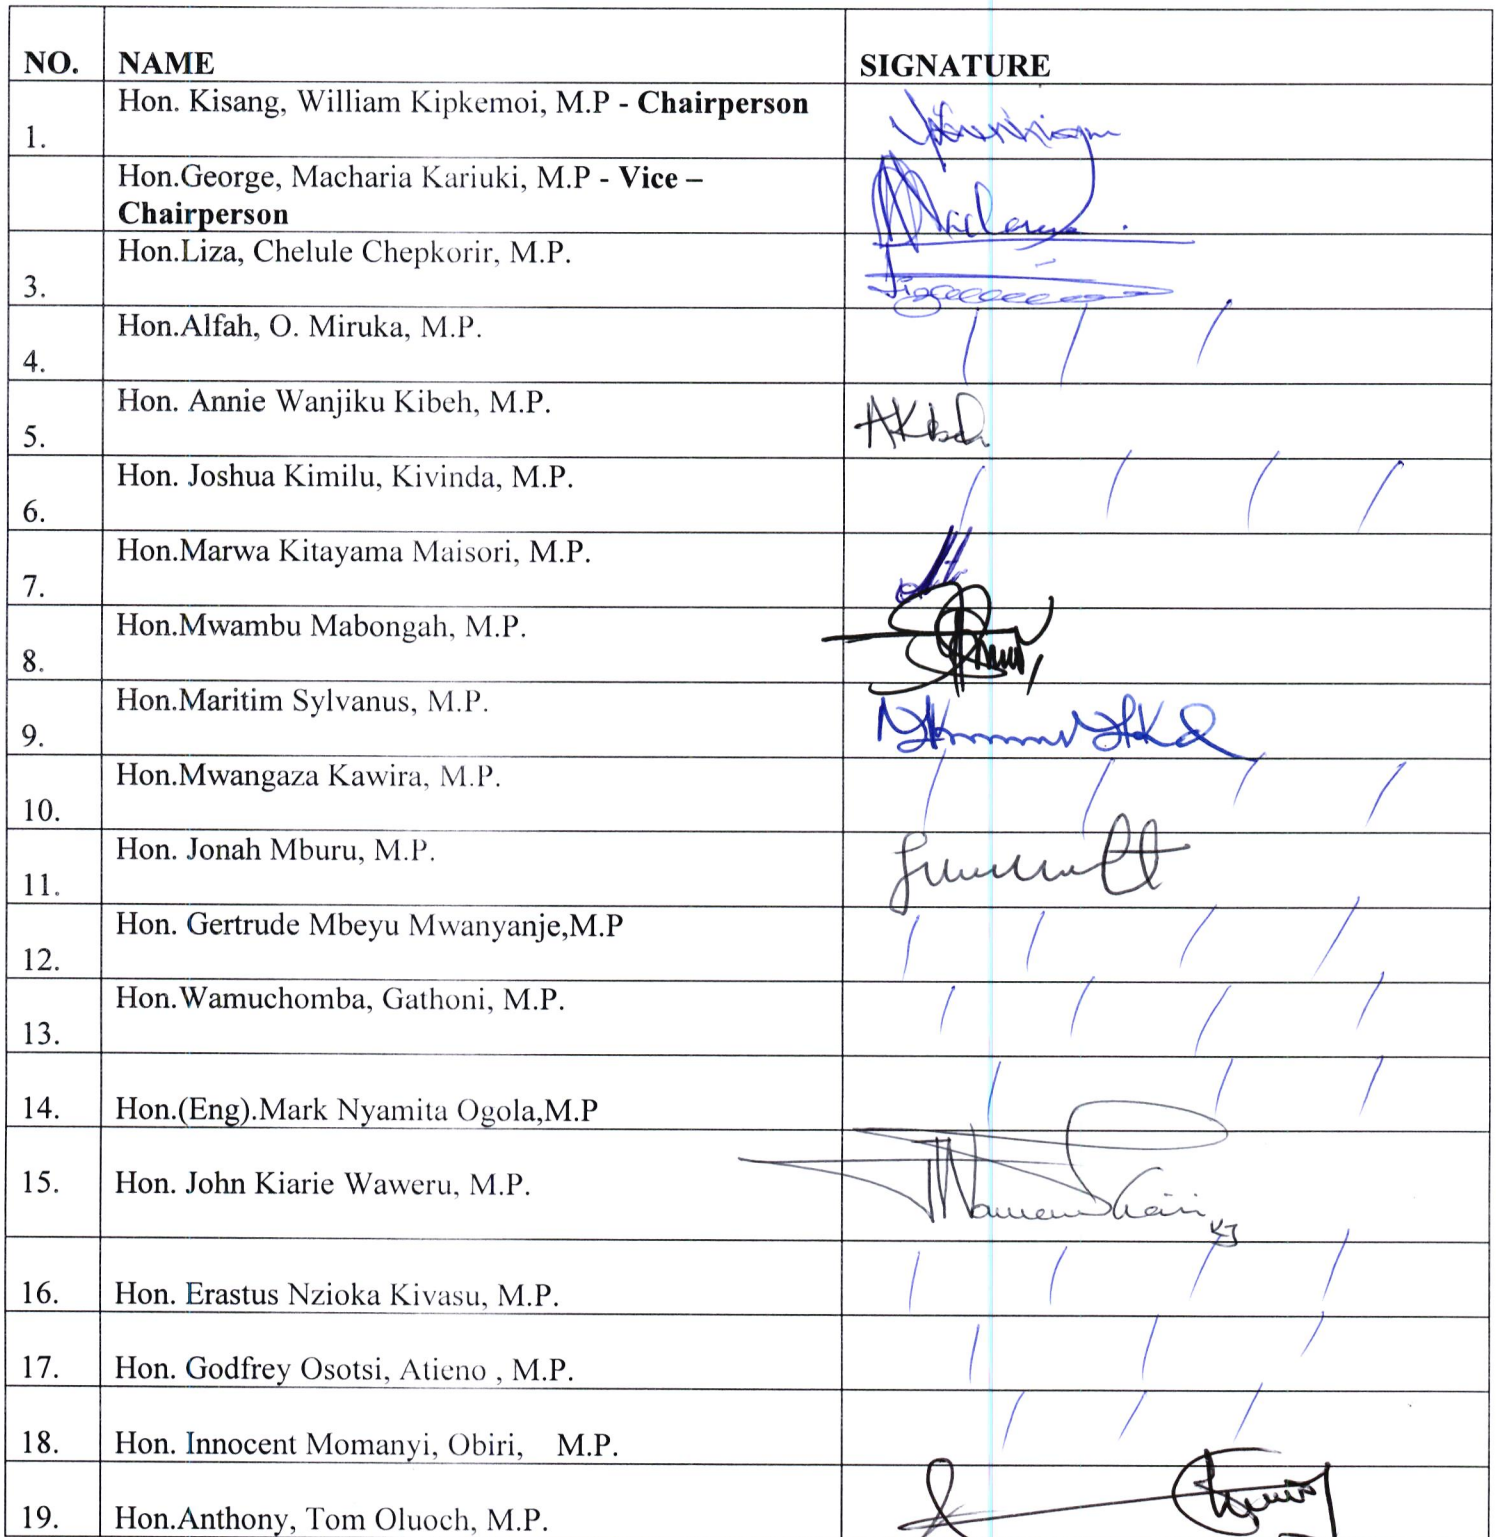 NO. NAME SIGNATURE
Hon. Kisang, William Kipkemoi, M.P - Chairperson
1.
Hon.George, Macharia Kariuki, M.P - Vice –
Chairperson
Hon.Liza, Chelule Chepkorir, M.P.
3.
Hon.Alfah, O. Miruka, M.P.
4.
Hon. Annie Wanjiku Kibeh, M.P.
5.
Hon. Joshua Kimilu, Kivinda, M.P.
6.
Hon.Marwa Kitayama Maisori, M.P.
7.
Hon.Mwambu Mabongah, M.P.
8.
Hon.Maritim Sylvanus, M.P.
9.
Hon.Mwangaza Kawira, M.P.
10.
Hon. Jonah Mburu, M.P.
11.
Hon. Gertrude Mbeyu Mwanyanje,M.P
12.
Hon.Wamuchomba, Gathoni, M.P.
13.
14. Hon.(Eng).Mark Nyamita Ogola,M.P
15. Hon. John Kiarie Waweru, M.P.
KJ
16. Hon. Erastus Nzioka Kivasu, M.P.
17. Hon. Godfrey Osotsi, Atieno , M.P.
18. Hon. Innocent Momanyi, Obiri, M.P.
19. Hon.Anthony, Tom Oluoch, M.P.